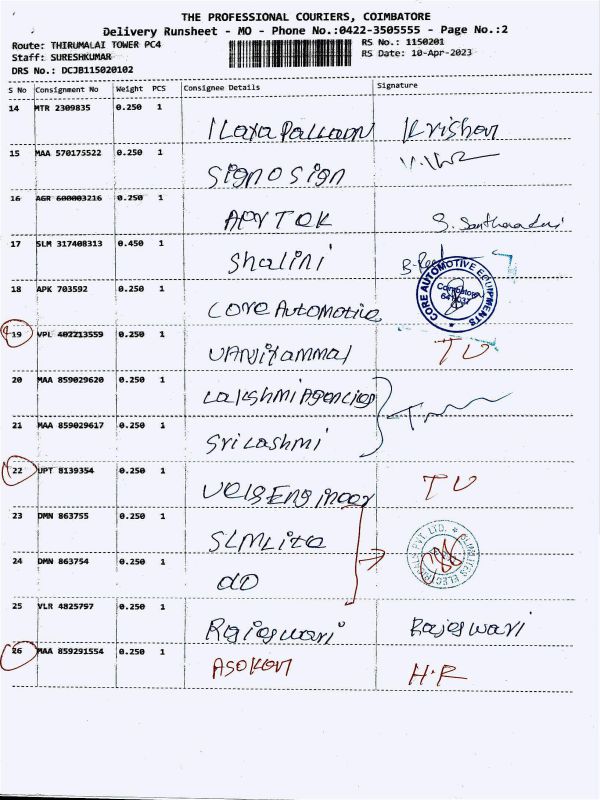 THE PROFESSIONAL COURIERS, COIMBATORE
Delivery Runsheet - MO - Phone No.:0422-3505555 - Page No.:2
Route: THIRUMALAI TOWER PC4 RS No.: 1150201
Staff: SURESHKUMAR RS Date: 10-Apr-2023
DRS No.: DCJB115020102
S No Consignment No Weight PCS Consignee Details Signature
14 MTR 2309835 0.250 1
Krishan
15 MAA 570175522 0.250 1
Signosign
16 AGR 600003216 0.250 1
APVTEK
17 SLM 317408313 0.450 1
Shalini
CORE AUTOMOTIVE EQUIPMENTS
Coimbatore
18 APK 703592 0.250 1
Core Automotive
19 VPL 402213559 0.250 1
TU
20 MAA 859029620 0.250 1
Lakshmi Agencies
21 MAA 859029617 0.250 1
Sri Lashmi
22 UPT 8139354 0.250 1
VelsEngineer TU
23 DMN 863755 0.250 1
SLMLite
24 DMN 863754 0.250 1
dD
25 VLR 4825797 0.250 1
Rajeswari Rajeswari
26 MAA 859291554 0.250 1
ASOKan